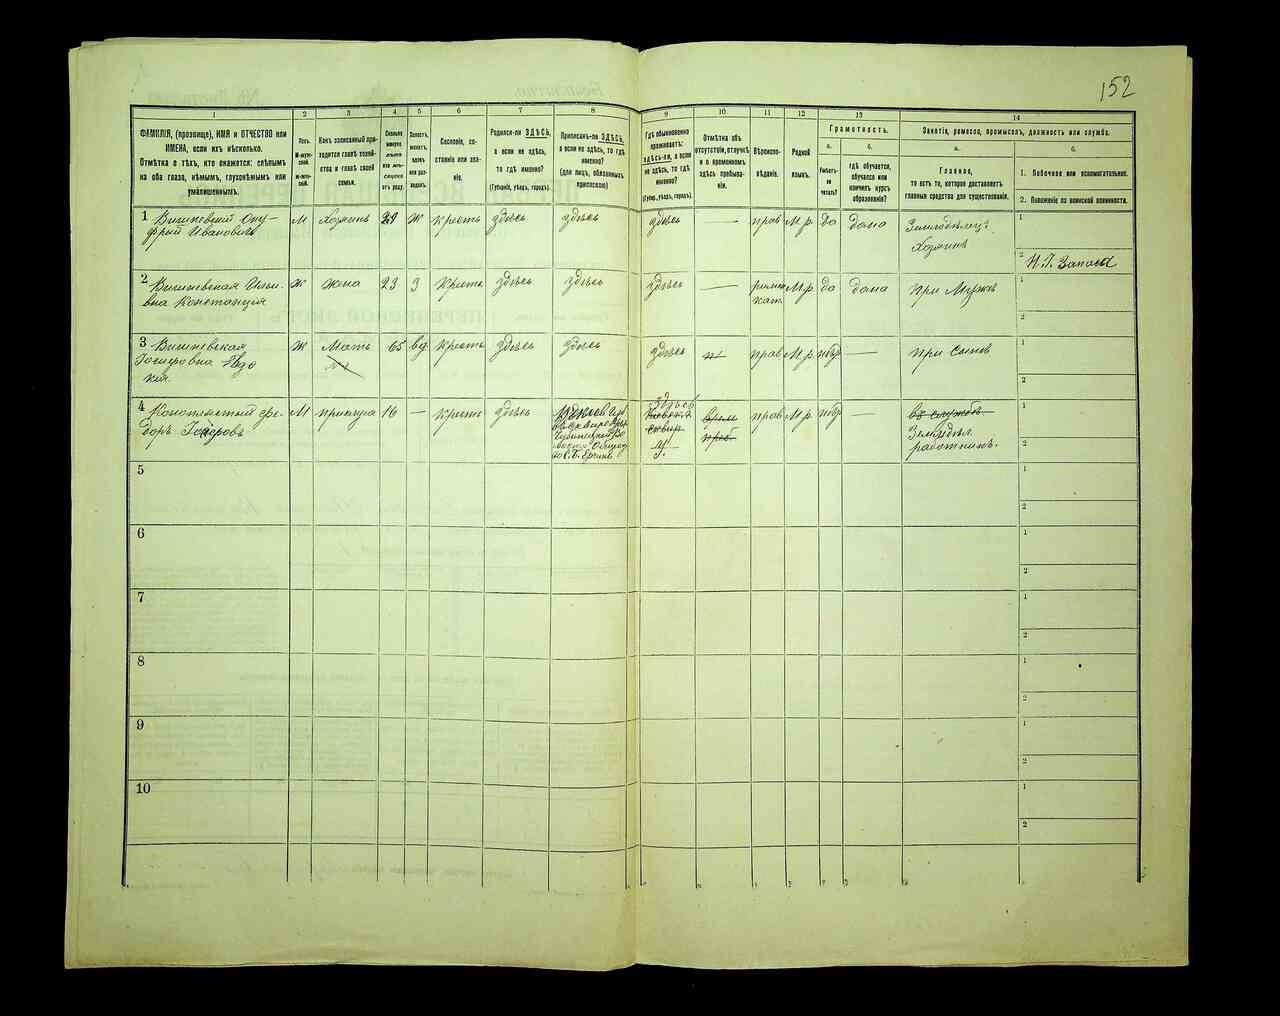 152
1
2
3
4
5
6
7
8
9
10
11
12
13
14
ФАМИЛІЯ, (прозвище), ИМЯ и ОТЧЕСТВО или
ИМЕНА, если ихъ нѣсколько.
Отмѣтка о тѣхъ, кто окажется: слѣпымъ
на оба глаза, нѣмымъ, глухонѣмымъ или
умалишеннымъ.
Полъ.
М-мужской.
Ж-женской.
Какъ записанный приходится
главѣ хозяйства
и главѣ своей
семьи.
Сколько
минуло
лѣтъ
или мѣсяцевъ
отъ роду.
Холостъ,
женатъ,
вдовъ
или разведенъ.
Сословіе, состояніе
или званіе.
Родился-ли ЗДѢСЬ,
а если не здѣсь,
то гдѣ именно?
(Губернія, уѣздъ, городъ).
Приписанъ-ли ЗДѢСЬ,
а если не здѣсь, то гдѣ
именно?
(для лицъ, обязанныхъ
припискою)
Гдѣ обыкновенно
проживаетъ:
здѣсь-ли, а если
не здѣсь, то гдѣ
именно?
(Губер., уѣздъ, городъ).
Отмѣтка объ
отсутствіи, отлучкѣ
и о временномъ
здѣсь пребываніи.
Вѣроисповѣданіе.
Родной
языкъ.
Грамотность.
а.
Умѣетъ-ли
читать?
б.
гдѣ обучается,
обучался или
кончилъ курсъ
образованія?
Занятіе, ремесло, промыселъ, должность или служба.
а.
Главное,
то есть то, которое доставляетъ
главныя средства для существованія.
б.
1. Побочное или вспомогательное.
2. Положеніе по воинской повинности.
1
Вишневскій Ону-
фрій Ивановичъ
М
Хозяинъ
29
Ж
Крестъ
здѣсь
здѣсь
здѣсь
—
прав
М.р.
да
дома
Хозяинъ
1
2
Н.Г. Запаса
2
Вишневская
вна Констанція
Ж
жена
23
З
Крестъ
здѣсь
здѣсь
здѣсь
—
римск
кат.
М.р.
да
дома
при Мужѣ
1
2
3
Вишневская
Ж
Мать
65
вд
Крестъ
здѣсь
здѣсь
здѣсь
прав
М.р.
нѣт
—
при сынѣ
1
2
4
Коноплястый Фе-
доръ
М
прислуга
16
—
Крестъ
здѣсь
здѣсь
Кіевска
сквир
У.
врем
преб
прав
М.р.
нѣт
—
въ службѣ
Земледѣл.
работникъ.
1
2
5
1
2
6
1
2
7
1
2
8
1
2
9
1
2
10
1
2